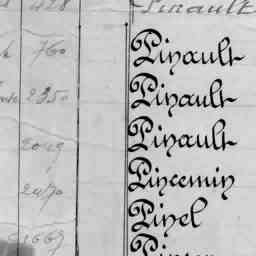 428 Pinault
760 Pinault
2350 Pinault
2049 Pinault
2470 Pincemin
Pinel
1667